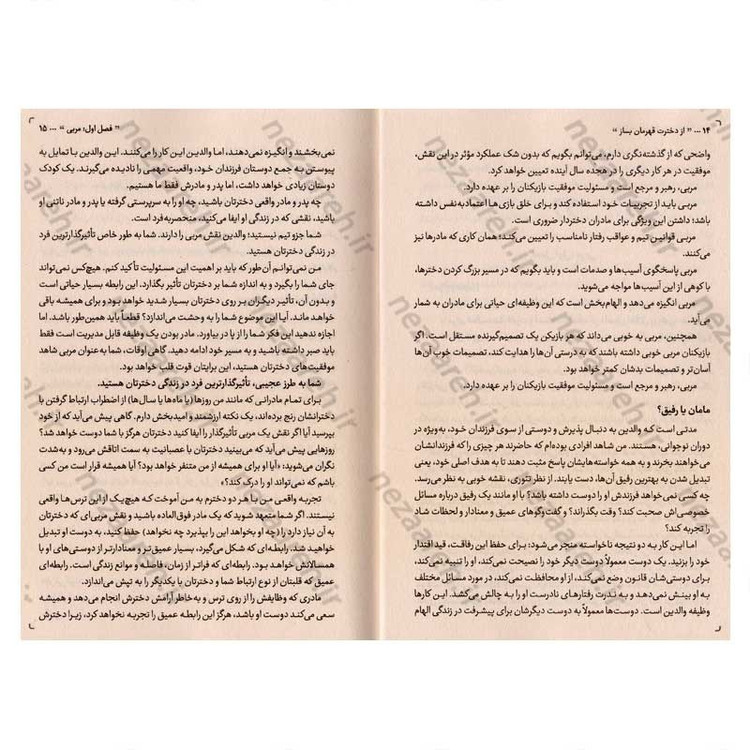 ۱۴ ... " از دخترت قهرمان بساز "
واضحی که از گذشته‌نگری دارم، می‌توانم بگویم که بدون شک عملکرد مؤثر در این نقش،
موفقیت در هر کار دیگری را در هجده سال آینده تعیین خواهد کرد.
مربی، رهبر و مرجع است و مسئولیت موفقیت بازیکنان را بر عهده دارد.
مربی باید از تجربیات خود استفاده کند و برای خلق بازی‌ها اعتمادبه‌نفس داشته
باشد؛ داشتن این ویژگی برای مادران دختردار ضروری است.
مربی قوانین تیم و عواقب رفتار نامناسب را تعیین می‌کند؛ همان کاری که مادرها نیز
می‌کنند.
مربی پاسخگوی آسیب‌ها و صدمات است و باید بگویم که در مسیر بزرگ کردن دخترها،
با کوهی از این آسیب‌ها مواجه می‌شوید.
مربی انگیزه می‌دهد و الهام‌بخش است که این وظیفه‌ای حیاتی برای مادران به شمار
می‌آید.
همچنین، مربی به خوبی می‌داند که هر بازیکن یک تصمیم‌گیرنده مستقل است. اگر
بازیکنان مربی خوبی داشته باشند که به درستی آن‌ها را هدایت کند، تصمیمات خوب آن‌ها
آسان‌تر و تصمیمات بدشان کمتر خواهد بود.
مربی، رهبر و مرجع است و مسئولیت موفقیت بازیکنان را بر عهده دارد.
مامان یا رفیق؟
مدتی است که والدین به دنبال پذیرش و دوستی از سوی فرزندان خود، به‌ویژه در
دوران نوجوانی، هستند. من شاهد افرادی بوده‌ام که حاضرند هر چیزی را که فرزندانشان
می‌خواهند بخرند و به همه خواسته‌هایشان پاسخ مثبت دهند تا به هدف اصلی خود، یعنی
تبدیل شدن به بهترین رفیق آن‌ها، دست یابند. از نظر تئوری، نقشه خوبی به نظر می‌رسد.
چه کسی نمی‌خواهد فرزندش او را دوست داشته باشد؟ با او مانند یک رفیق درباره مسائل
خصوصی‌اش صحبت کند؟ وقت بگذراند؟ و گفت‌وگوهای عمیق و معنادار و لحظات شاد
را تجربه کند؟
اما این کار به دو نتیجه ناخواسته منجر می‌شود: برای حفظ این رفاقت، قید اقتدار
خود را بزنید. یک دوست معمولاً دوست دیگر خود را نصیحت نمی‌کند، او را تنبیه نمی‌کند،
برای دوستی‌شان قانون وضع نمی‌کند، از او محافظت نمی‌کند، در مورد مسائل مختلف
به او بینش نمی‌دهد و به ندرت رفتارهای نادرست او را به چالش می‌کشد. این کارها
وظیفه والدین است. دوست‌ها معمولاً به دوست دیگرشان برای پیشرفت در زندگی الهام
" فصل اول: مربی " ... ۱۵
نمی‌بخشند و انگیزه نمی‌دهند، اما والدین این کار را می‌کنند. این والدین با تمایل به
پیوستن به جمع دوستان فرزندان خود، واقعیت مهمی را نادیده می‌گیرند. یک کودک
دوستان زیادی خواهد داشت، اما پدر و مادرش فقط ما هستیم.
چه پدر و مادر واقعی دخترتان باشید، چه او را به سرپرستی گرفته یا پدر و مادر ناتنی او
باشید، نقشی که در زندگی او ایفا می‌کنید، منحصربه‌فرد است.
شما جزو تیم نیستید؛ والدین نقش مربی را دارند. شما به طور خاص تأثیرگذارترین فرد
در زندگی دخترتان هستید.
من نمی‌توانم آن‌طور که باید بر اهمیت این مسئولیت تأکید کنم. هیچ‌کس نمی‌تواند
جای شما را بگیرد و به اندازه شما بر دخترتان تأثیر بگذارد. این رابطه بسیار حیاتی است
و بدون آن، تأثیر دیگران بر روی دخترتان بسیار شدید خواهد بود و برای همیشه باقی
خواهد ماند. آیا این موضوع شما را به وحشت می‌اندازد؟ قطعاً باید همین‌طور باشد. اما
اجازه ندهید این فکر شما را از پا در بیاورد. مادر بودن یک وظیفه قابل مدیریت است فقط
باید صبر داشته باشید و به مسیر خود ادامه دهید. گاهی اوقات، شما به‌عنوان مربی شاهد
موفقیت‌های دخترتان هستید، این برایتان قوت قلب خواهد بود.
شما به طرز عجیبی، تأثیرگذارترین فرد در زندگی دخترتان هستید.
برای تمام مادرانی که مانند من روزها (یا ماه‌ها یا سال‌ها) از اضطراب ارتباط گرفتن با
دخترانشان رنج برده‌اند، یک نکته ارزشمند و امیدبخش دارم. گاهی پیش می‌آید که از خود
بپرسید آیا اگر نقش یک مربی تأثیرگذار را ایفا کنید دخترتان هرگز با شما دوست خواهد شد؟
روزهایی پیش می‌آید که می‌بینید دخترتان با عصبانیت به سمت اتاقش می‌رود و به‌شدت
نگران می‌شوید: «آیا او برای همیشه از من متنفر خواهد بود؟ آیا همیشه قرار است من کسی
باشم که نمی‌تواند او را درک کند؟»
تجربه واقعی من با هر دو دخترم به من آموخت که هیچ‌یک از این ترس‌ها واقعی
نیستند. اگر شما متعهد شوید که یک مادر فوق‌العاده باشید و نقش مربی‌ای که دخترتان
به آن نیاز دارد را (چه او بخواهد این را بپذیرد چه نخواهد) حفظ کنید، به دوست او تبدیل
خواهید شد. رابطه‌ای که شکل می‌گیرد، بسیار عمیق‌تر و معنادارتر از دوستی‌های او با
همسالانش خواهد بود. رابطه‌ای که فراتر از زمان، فاصله و موانع زندگی است. رابطه‌ای
عمیق که قلبتان از نوع ارتباط شما و دخترتان با یکدیگر را به تپش می‌اندازد.
مادری که وظایفش را از روی ترس و به‌خاطر آرامش دخترش انجام می‌دهد و همیشه
سعی می‌کند دوست او باشد، هرگز این رابطه عمیق را تجربه نخواهد کرد، زیرا دخترش
nezaareh.ir